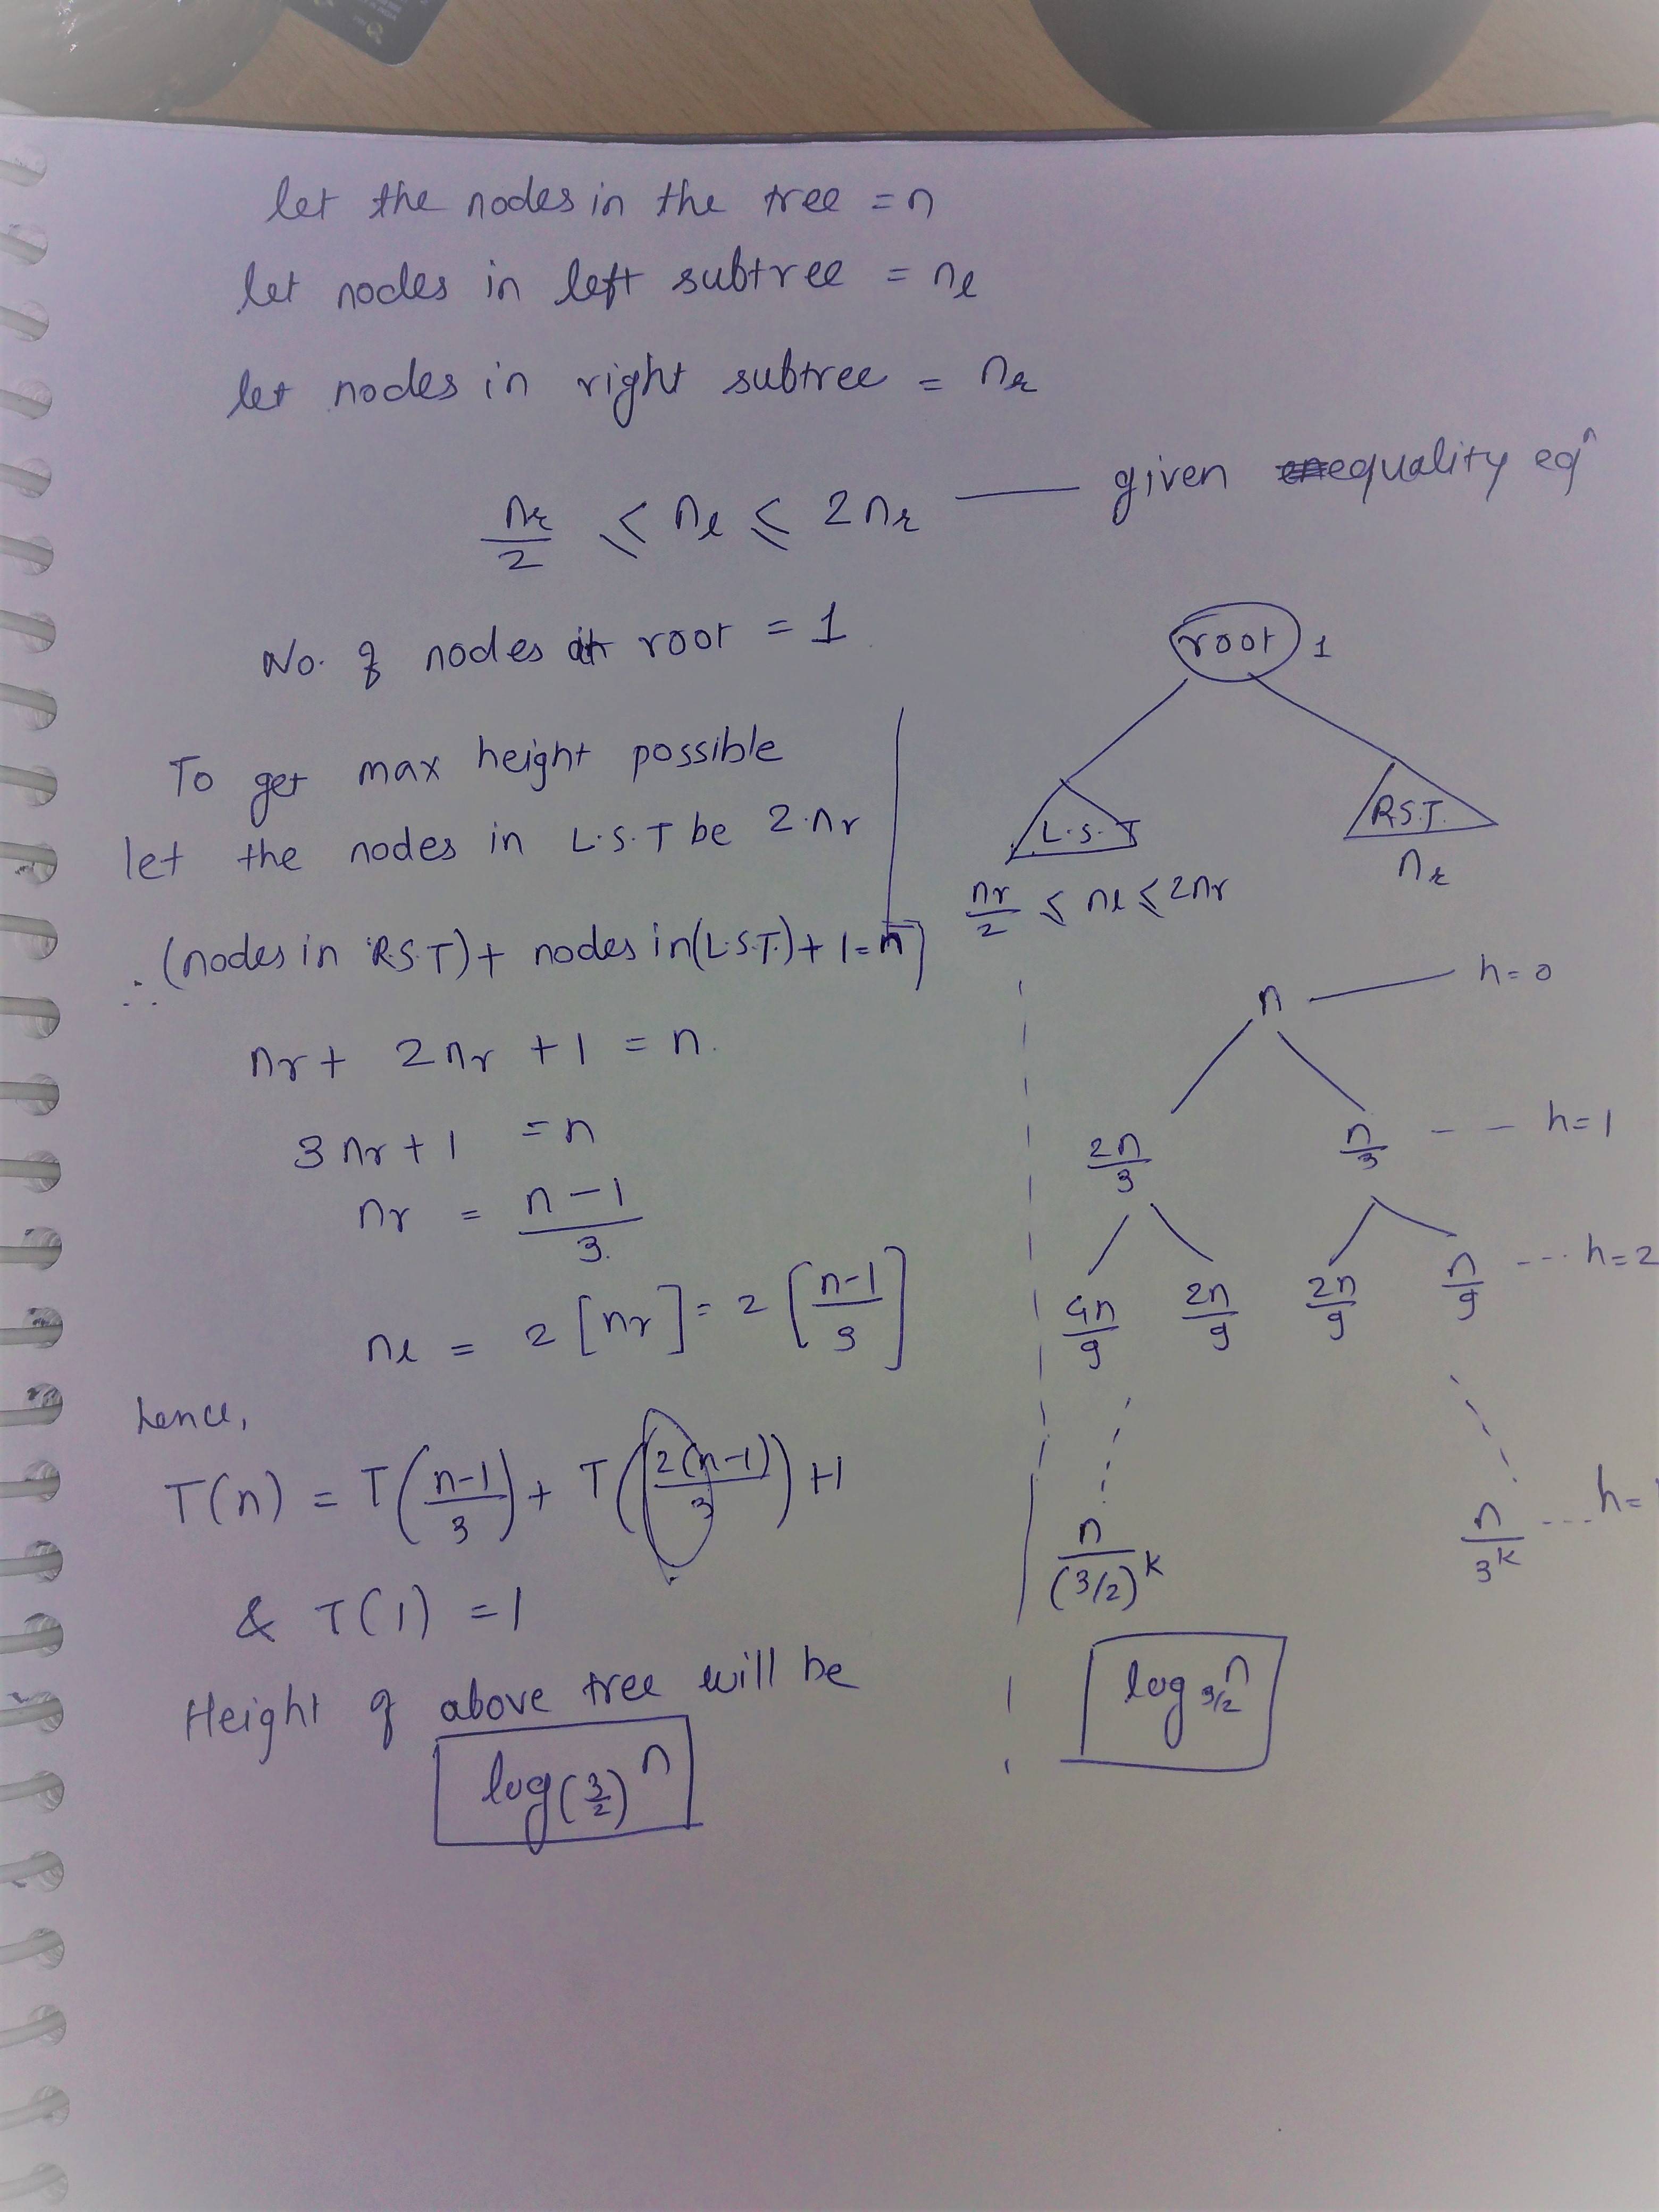 let the nodes in the tree = n
let nodes in left subtree = nl
let nodes in right subtree = nr
nr/2 ≤ nl ≤ 2nr — given equality eqn
No. of nodes in root = 1
root 1
To get max height possible
let the nodes in L.S.T be 2.nr
L.S.T
R.S.T.
nr/2 ≤ nl ≤ 2nr
nr
∴ (nodes in R.S.T) + nodes in (L.S.T.) + 1 = n
nr + 2nr + 1 = n.
3nr + 1 = n
nr = (n-1)/3.
nl = 2[nr] = 2[(n-1)/3]
hence,
T(n) = T((n-1)/3) + T(2(n-1)/3) + 1
& T(1) = 1
Height of above tree will be
log(3/2) n
n — h=0
2n/3 n/3 -- h=1
4n/9 2n/9 2n/9 n/9 --- h=2
n/(3/2)^k n/3^k ---- h=
log 3/2 n